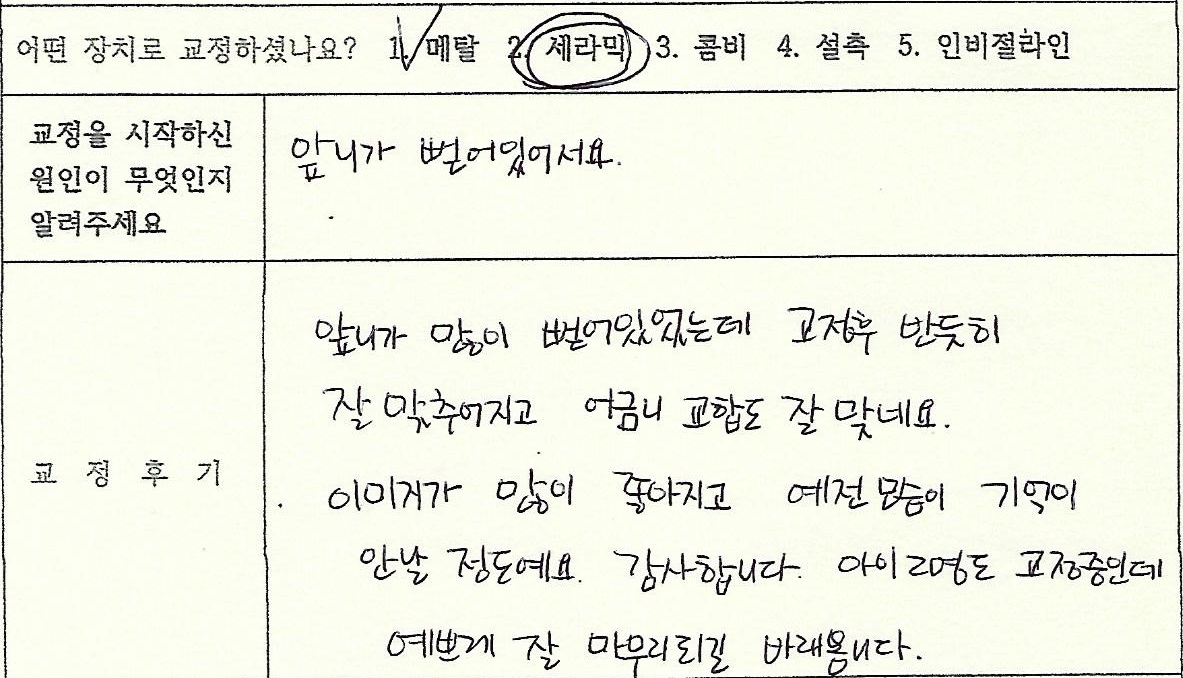 어떤 장치로 교정하셨나요? 1. 메탈 2. 세라믹 3. 콤비 4. 설측 5. 인비절라인
교정을 시작하신
원인이 무엇인지
알려주세요
앞니가 뻗어있어서요.
교 정 후 기
앞니가 많이 뻗어있었는데 교정후 반듯히
잘 맞추어지고 어금니 교합도 잘 맞네요.
이미지가 많이 좋아지고 예전 모습이 기억이
안날 정도예요. 감사합니다. 아이 2명도 교정중인데
예쁘게 잘 마무리되길 바래봅니다.